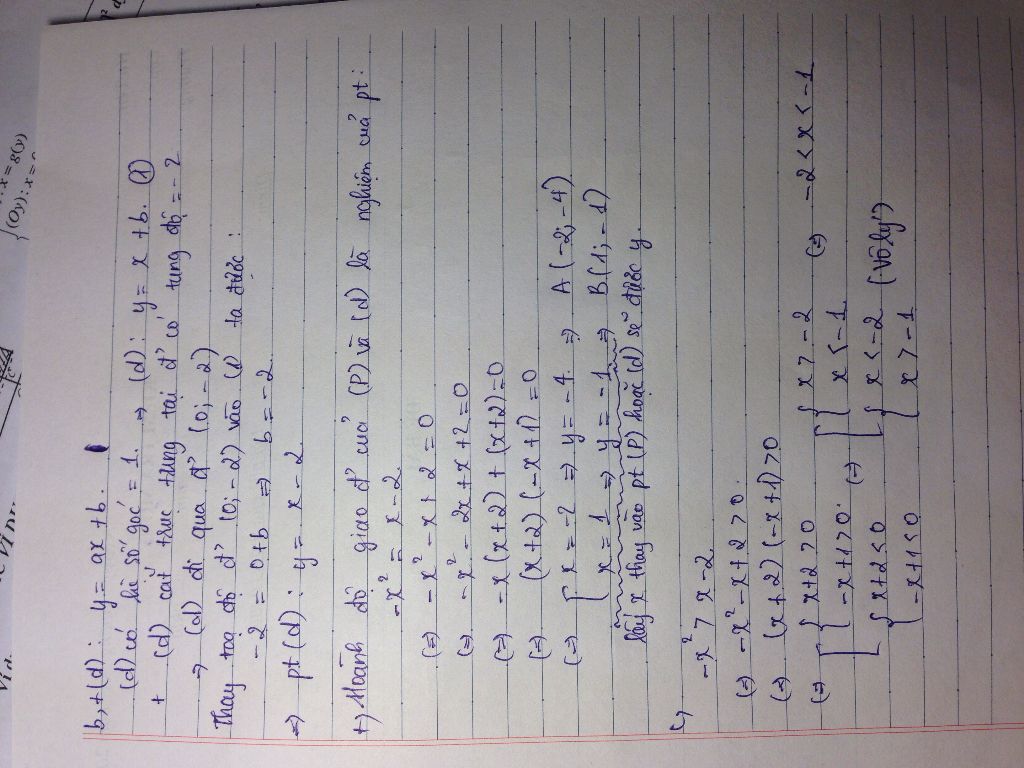 b, + (d) : y = ax + b.
(d) có hệ số góc = 1. => (d) : y = x + b. (1)
+ (d) cắt trục tung tại đ' có tung độ = -2
=> (d) đi qua đ' (0; -2)
Thay toạ độ đ' (0; -2) vào (1) ta được :
-2 = 0 + b => b = -2.
=> pt (d) : y = x - 2.
+, Hoành độ giao đ' của (P) và (d) là nghiệm của pt :
-x² = x - 2.
(=) -x² - x + 2 = 0
(=) -x² - 2x + x + 2 = 0
(=) -x (x + 2) + (x + 2) = 0
(=) (x + 2) (-x + 1) = 0
(=) [ x = -2 => y = -4. => A (-2; -4)
x = 1 => y = -1 => B (1; -1)
lấy x thay vào pt (P) hoặc (d) sẽ được y.
c,
-x² > x - 2
(=) -x² - x + 2 > 0.
(=) (x + 2) (-x + 1) > 0
(=) [ { x + 2 > 0 (=) [ { x > -2 (=) -2 < x < -1
-x + 1 > 0. x < -1.
{ x + 2 < 0 { x < -2 (vô lý)
-x + 1 < 0 x > -1
{ (Oy) : x =
: x = g(y)